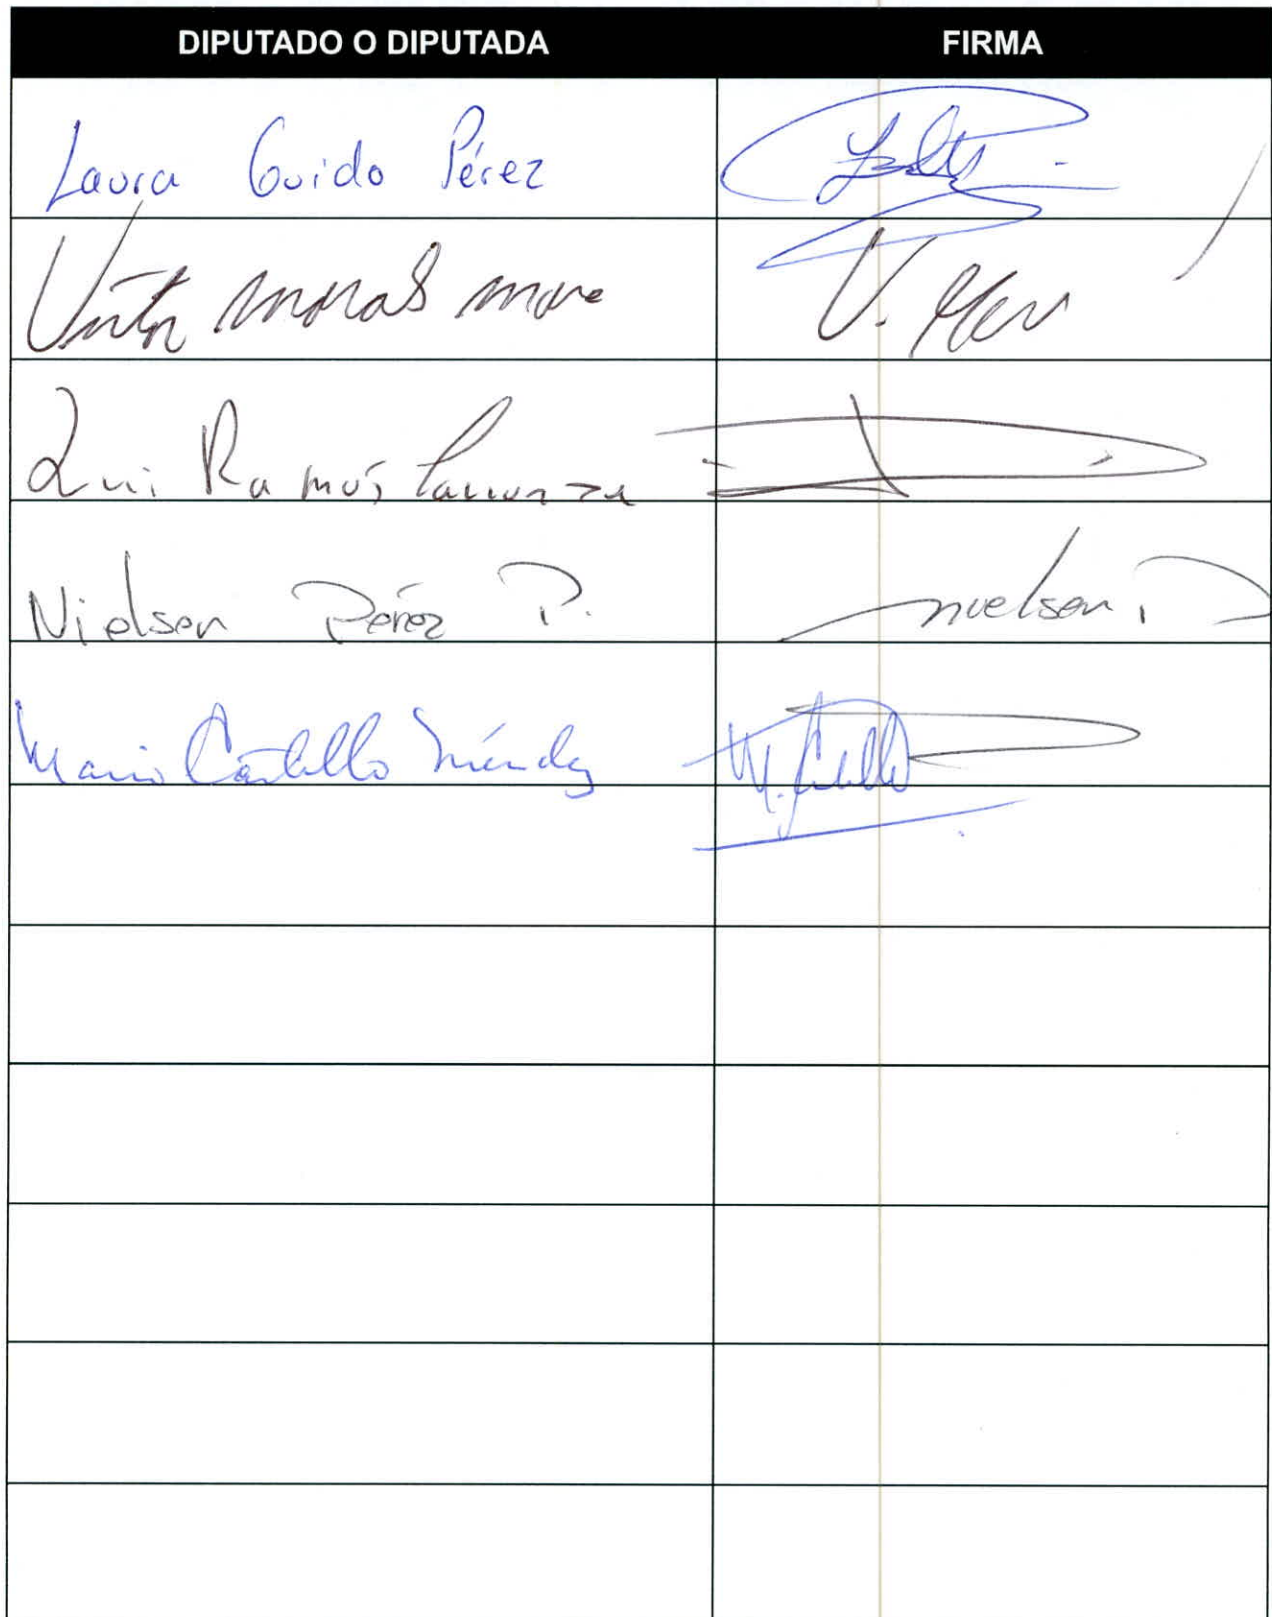 DIPUTADO O DIPUTADA FIRMA
Laura Guido Pérez
Morales Mora V.
Ramón Carranza
Nielsen Pérez P. Nielsen P
Mario Castillo Méndez M. Castillo